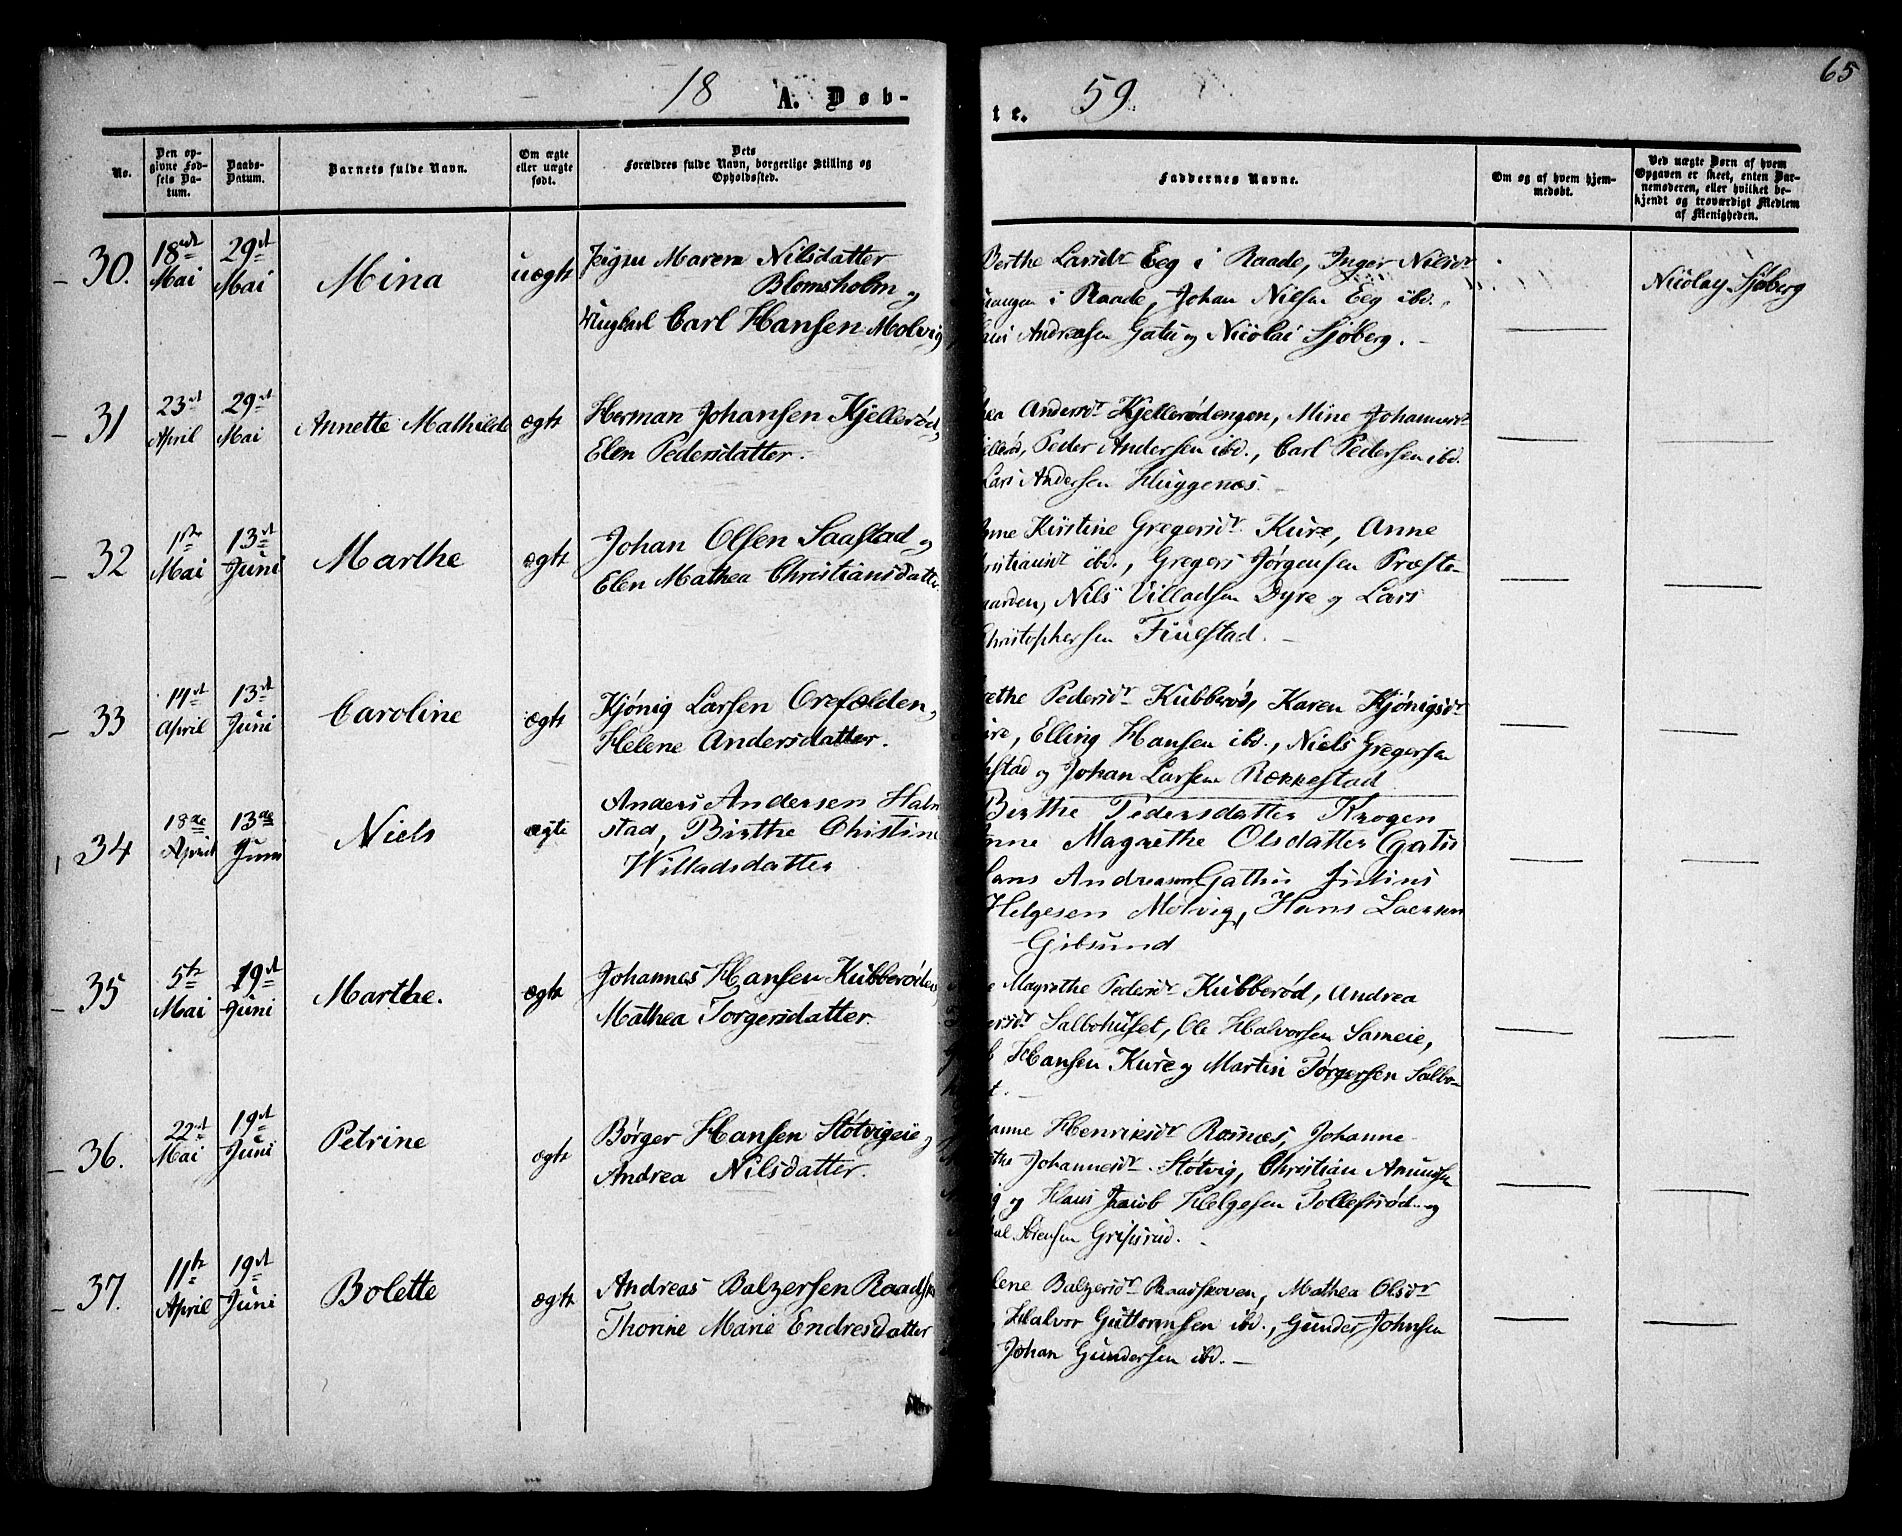 18 A. Døb-
te. 59.
65
No.
Den op-
givne Fød-
sels Da-
tum.
Daabs-
Datum.
Barnets fulde Navn.
Om ægte
eller uægte
født.
Dets
Forældres fulde Navn, borgerlige Stilling og
Opholdssted.
Faddernes Navne.
Om og af hvem hjem-
medøbt.
Ved uægte Børn af hvem
Opgaven er skeet, enten Bar-
nemoderen, eller hvilket be-
kjendt og troværdigt Medlem
af Menigheden.
30.
18de
Mai
29de
Mai
Mina
uægte
Pigen Maren Nilsdatter
Blomsholm og
Ungkarl Carl Hansen Molvig
Berthe Larsdr Eeg i Raade, Inger Nilsdr
i Raade, Johan Nilsen Eeg ibd.,
Andreasen Gatu og Nicolai Sjøberg.
Nicolay Sjøberg
31
23de
April
29de
Mai
Annette Mathilde
ægte
Herman Johansen Kjellerød,
Elen Pedersdatter.
Andersdr Kjellerødengen, Mine Johannesdr
Peder Andersen ibd., Carl Pedersen ibd.
Lars Andersen Huggenæs.
32
1ste
Mai
13de
Juni
Marthe
ægte
Johan Olsen Saastad og
Elen Mathea Christiansdatter.
Kirstine Gregersdr Kure, Anne
ibd., Gregers Jørgensen Præste-
gaarden, Nils Villadsen Dyre og Lars
Christophersen Finestad.
33
14de
April
13de
Juni
Caroline
ægte
Kjønig Larsen Orefolden,
Helene Andersdatter.
Pedersdr Kubberød, Karen Kjønigsdr
Elling Hansen ibd., Niels Gregersen
og Johan Larsen Rokkestad
34
18de
April
13de
Juni
Niels
ægte
Anders Andersen Halm
stad, Birthe Christine
Willadsdatter
Birthe Pedersdatter Krogen
Anne Magrethe Olsdatter Gatu
Hans Andreasen Gathu Julius
Helgesen Molvig, Hans Laersen
Gibsund
35
5te
Mai
19de
Juni
Marthe.
ægte
Johannes Hansen Kubberød
Mathea Torgersdatter.
Magrethe Pedersdr Kubberød, Andrea
Salbohuset, Ole Halvorsen Sameie,
Hansen Kure og Martin Torgersen Salbo-
36.
22de
Mai
19de
Juni
Petrine
ægte
Børger Hansen Støtvigeie og
Andrea Nilsdatter.
Henriksdr Ramnæs, Johanne
Johannesdr Støtvig, Christian Amundsen
og Hans Jacob Helgesen Tollefsrød og
Sørensen Grisrud.
37.
11te
April
19de
Juni
Bolette
ægte
Andreas Balzersen
Thorine Marie Endresdatter
Balzersdr Raadskoven, Mathea Olsdr
Halvor Guttormsen ibd., Gunder Johnsen
Johan Gundersen ibd.